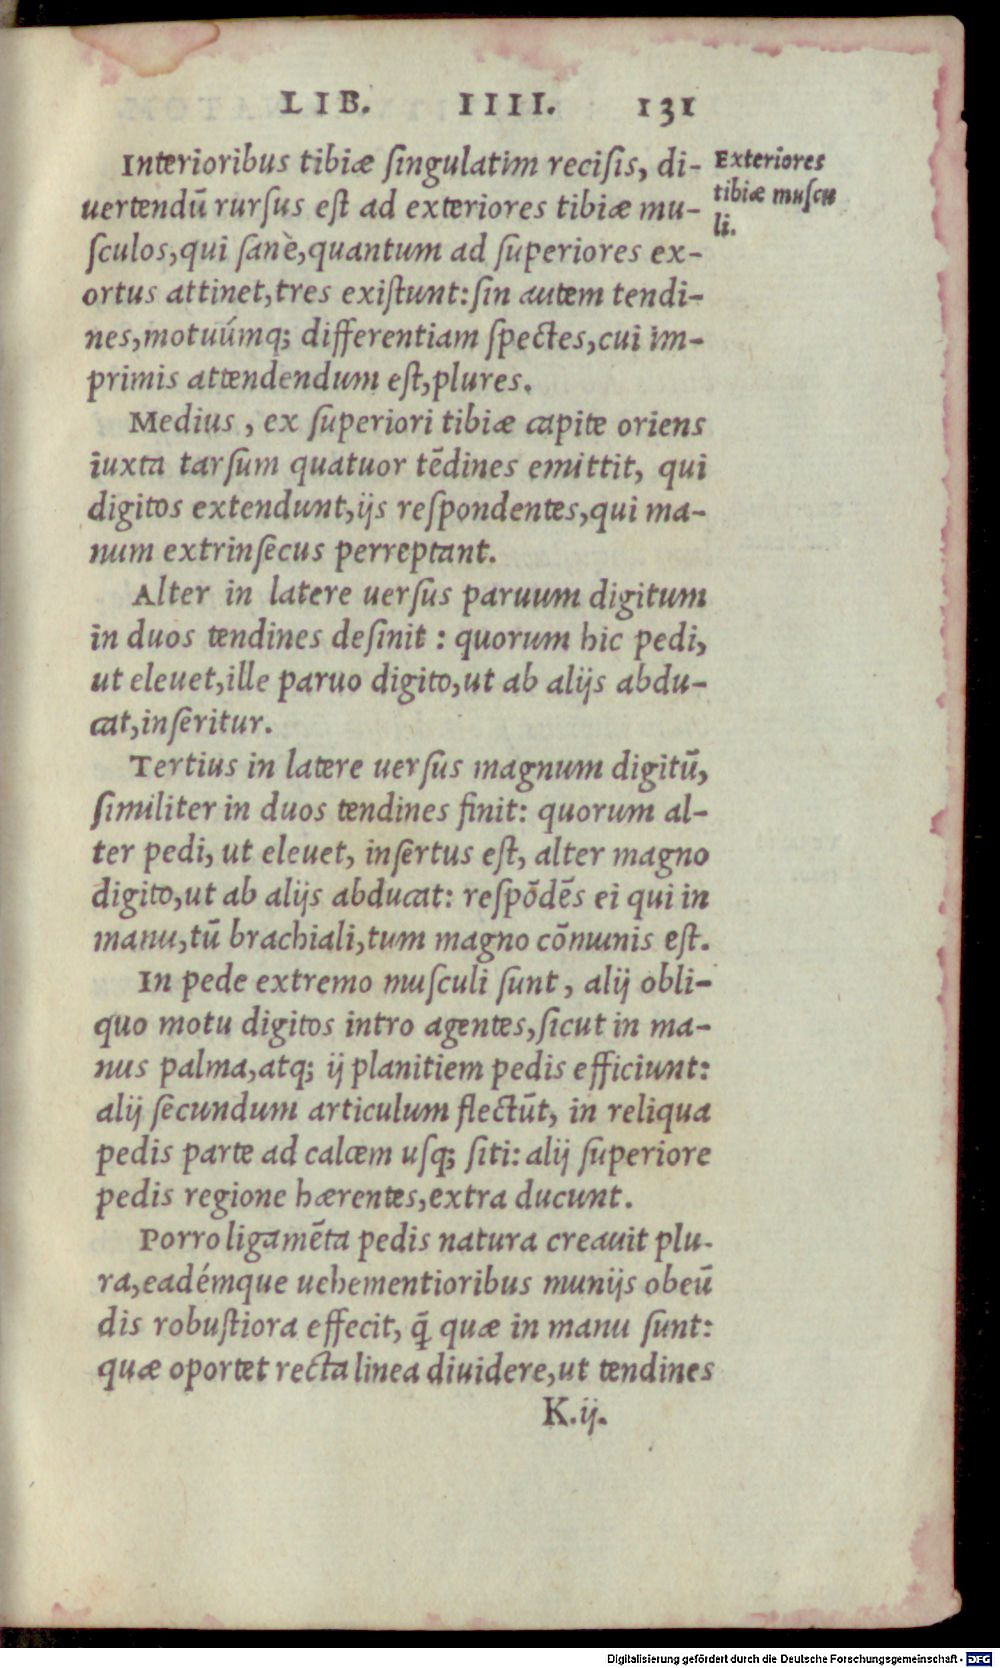 LIB. IIII. 131
Interioribus tibiæ ſingulatim reciſis, di-
uertendū rurſus eſt ad exteriores tibiæ mu-
ſculos,qui ſanè,quantum ad ſuperiores ex-
ortus attinet,tres exiſtunt:ſin autem tendi-
nes,motuúmq; differentiam ſpectes,cui im-
primis attendendum eſt,plures.
Exteriores
tibiæ muſcu
li.
Medius , ex ſuperiori tibiæ capite oriens
iuxta tarſum quatuor tēdines emittit, qui
digitos extendunt,ijs reſpondentes,qui ma-
num extrinſecus perreptant.
Alter in latere uerſus paruum digitum
in duos tendines deſinit : quorum hic pedi,
ut eleuet,ille paruo digito,ut ab alijs abdu-
cat,inſeritur.
Tertius in latere uerſus magnum digitū,
ſimiliter in duos tendines finit: quorum al-
ter pedi, ut eleuet, inſertus eſt, alter magno
digito,ut ab alijs abducat: reſpōdēs ei qui in
manu,tū brachiali,tum magno cōmunis eſt.
In pede extremo muſculi ſunt, alij obli-
quo motu digitos intro agentes,ſicut in ma-
nus palma,atq; ij planitiem pedis efficiunt:
alij ſecundum articulum flectūt, in reliqua
pedis parte ad calcem uſq; ſiti: alij ſuperiore
pedis regione hærentes,extra ducunt.
Porro ligamēta pedis natura creauit plu-
ra,eadémque uehementioribus munijs obeū
dis robuſtiora effecit, q̄ quæ in manu ſunt:
quæ oportet recta linea diuidere,ut tendines
K.ij.
Digitalisierung gefördert durch die Deutsche Forschungsgemeinschaft - DFG